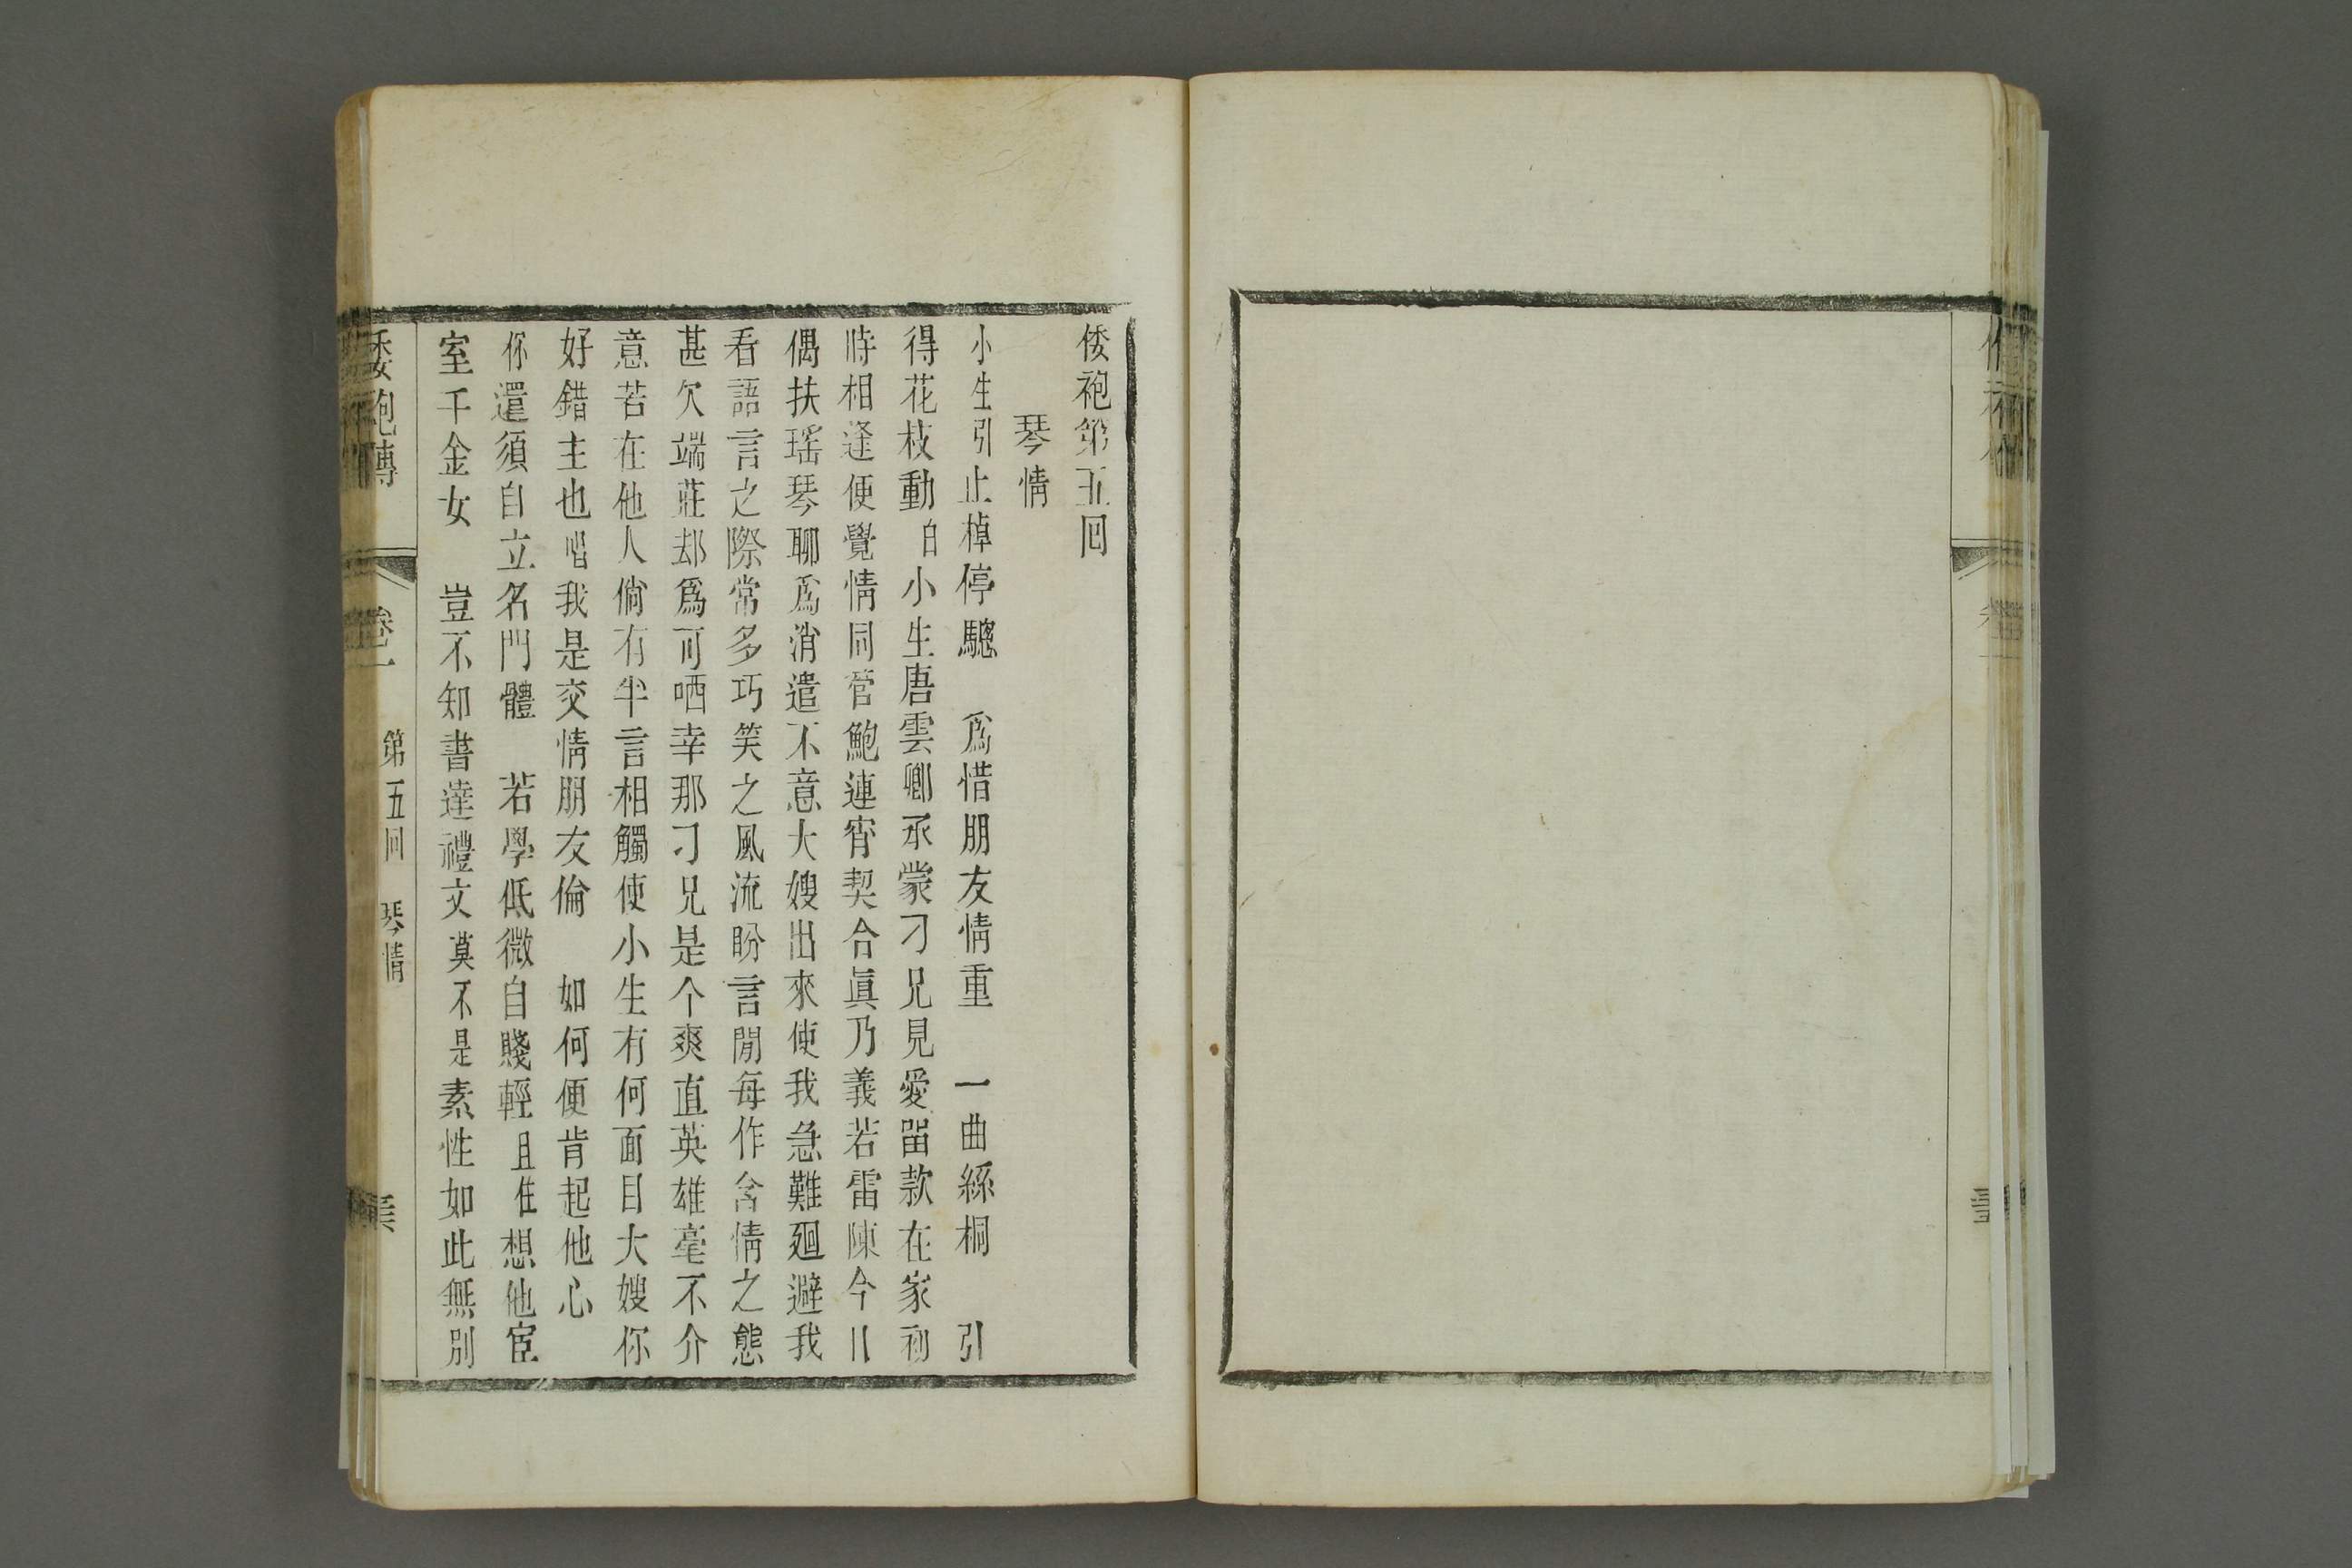 倭袍第五回
琴情
小生引 止棹停驄 爲惜朋友情重 一曲絲桐 引
得花枝動 白 小生唐雲卿承蒙刁兄見愛畱款在家初
時相逢便覺情同管鮑連宵契合眞乃義若雷陳今日
偶扶瑶琴聊爲消遣不意大嫂出來使我急難廻避我
看語言之際常多巧笑之風流盼言閒每作含情之態
甚欠端莊却爲可哂幸那刁兄是个爽直英雄毫不介
意若在他人倘有半言相觸使小生有何面目大嫂你
好錯主也 唱 我是交情朋友倫 如何便肯起他心
你還須自立名門體 若學低微自賤輕 且住想他宦
室千金女 豈不知書達禮文 莫不是素性如此無別
倭袍傳 卷一 第五回 琴情